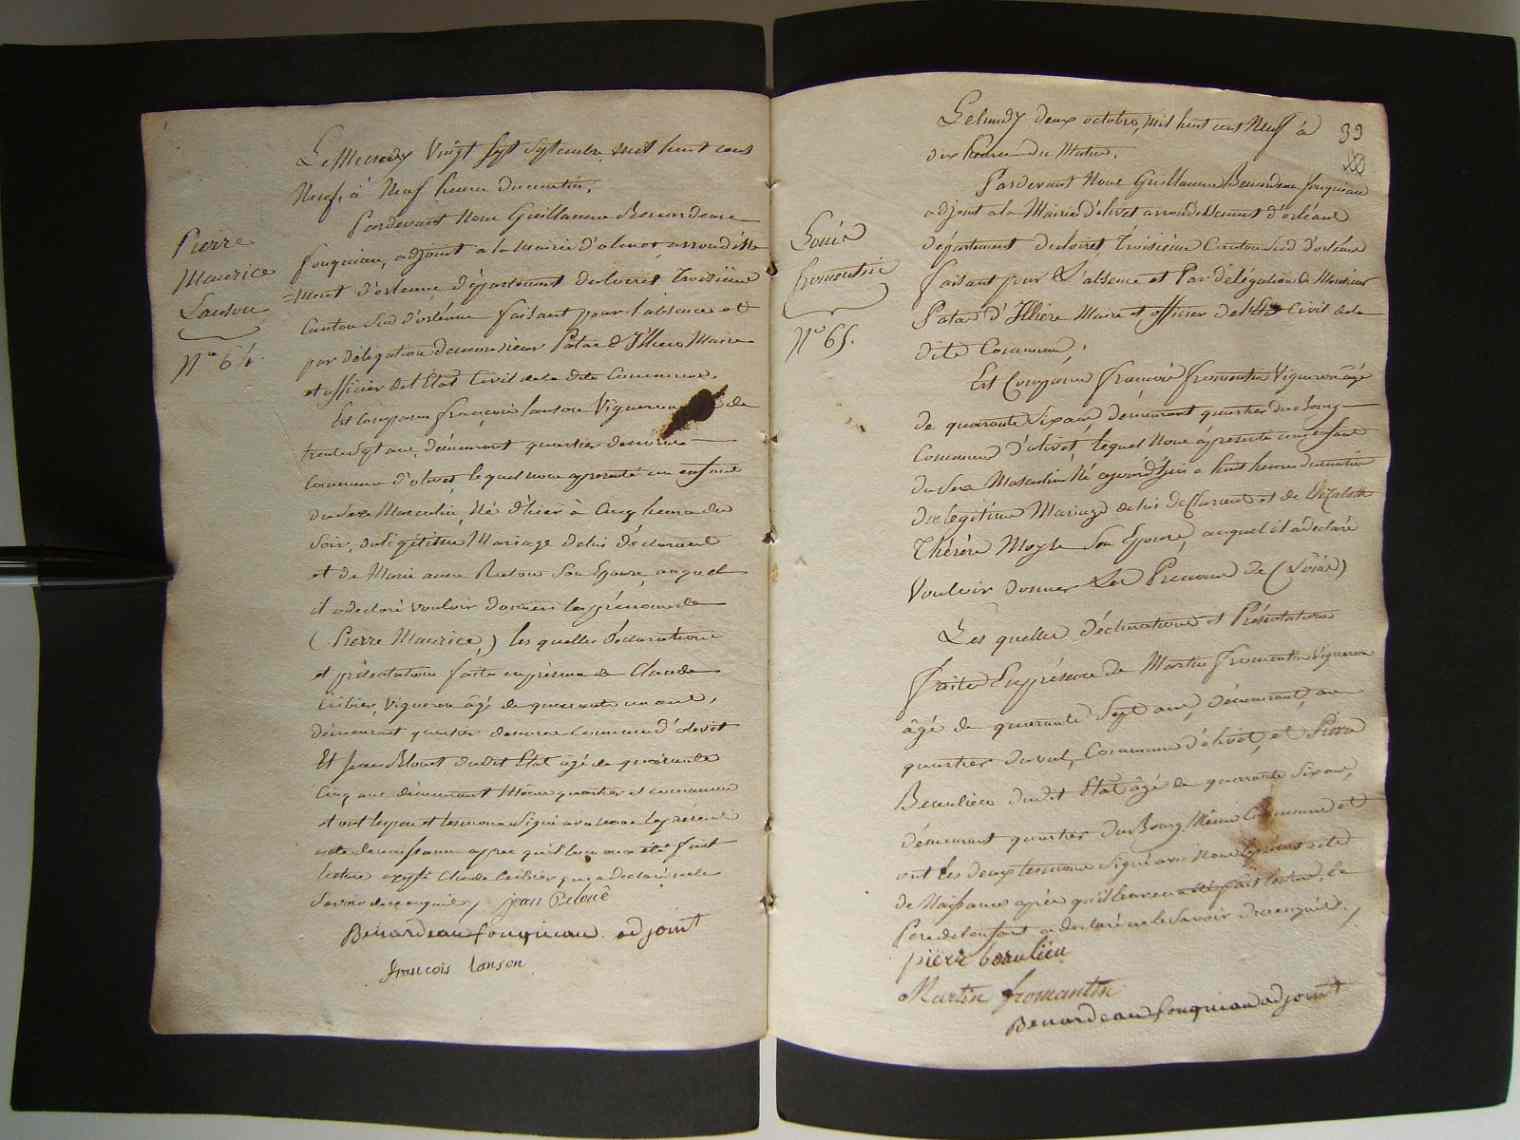 Pierre
Maurice
Lanson
N.º 64.
Le Mercredy Vingt Sept Septembre mil huit cent
Neuf, à Neuf heure du matin,
Pardevant Nous Guillaume Benardeau
fouqueau, adjoint a la Mairie d'olivet, arrondisse
=ment d'orleans, département du loiret, troisième
Canton Sud d'orléans faisant pour l'absence et
par délégation de monsieur Patas d'Illiers Maire
et officier de l'Etat Civil de la dite Commune.
Est Comparu françois lanson Vigneron de
trente Sept ans, demeurant quartier
Commune d'olivet, lequel nous a présenté un enfant
du Sexe Masculin, Né d'hier à Cinq heure du
Soir, du légitime Mariage de lui déclarant
et de Marie anne Son Epouse, auquel
il a declaré vouloir donner les prénoms de
(Pierre Maurice,) les quelles déclaration
et présentation faite en présence de Claude
Vigneron âgé de quarante un ans,
demeurant quartier Commune d'olivet
Et Jean dudit Etat âgé de quarante
Cinq ans demeurant Même quartier et commune
et ont le pere et temoins Signé avec nous le présent
acte de naissance apres qu'il leur en a été fait
lecture excepté Claude qui a declaré ne le
Savoir de ce enquis, jean
Benardeau fouqueau adjoint
francois lanson
39
Louis
fromentin
Nº 65.
Le lundy deux octobre, mil huit cent Neuf à
dix heure du Matin,
Pardevant Nous Guillaume Benardeau fouqueau
adjoint a la Mairie d'olivet arrondissement d'orléans
département du loiret, troisième Canton Sud d'orléans
faisant pour L'absence et Par délégation de Monsieur
Patas d'Illiers Maire et officier de l'Etat Civil de la
dite Commune,
Est Comparu françois fromentin Vigneron âgé
de quarante Six ans, demeurant quartier du bourg
Commune d'olivet, lequel Nous a présenté un enfant
du Sexe Masculin Né aujourd'hui a huit heure du matin
du légitime Mariage de lui déclarant et de
Thérèse Son Epouse, auquel il a declaré
Vouloir donner Les Prenoms de (Louis)
Les quelles déclaration et Présentation
faite En présence de Martin fromentin Vigneron
âgé de quarante Sept ans, demeurant, au
quartier du val, Commune d'olivet, et Pierre
Beaulieu dudit Etat âgé de quarante Six ans,
demeurant quartier du Bourg Même Commune et
ont les deux temoins Signé avec Nous le présent acte
de Naissance après qu'il leur en a été fait lecture, le
Pere de l'enfant a declaré ne le Savoir de ce enquis,
pierre beaulieu
Martin fromantin
Benardeau fouqueau adjoint